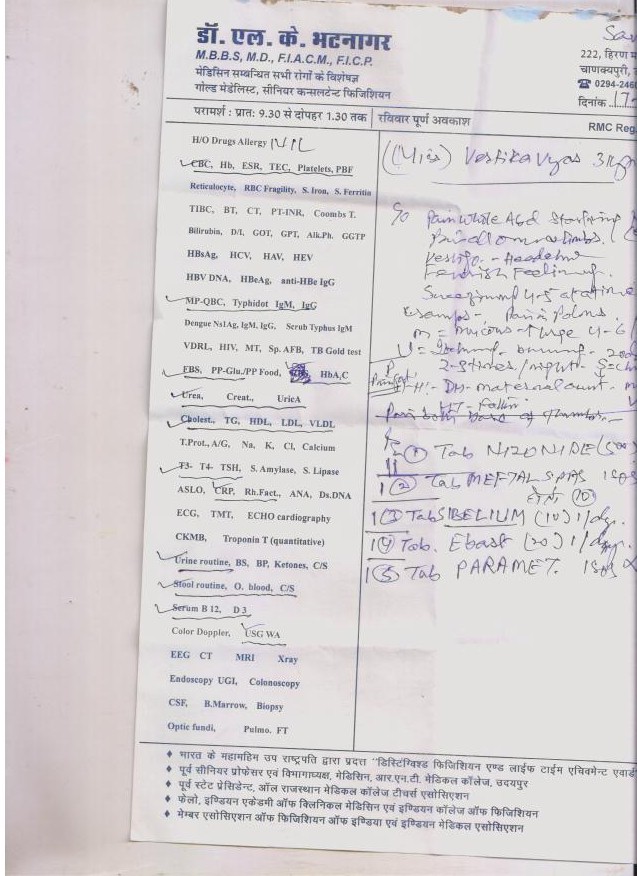 डॉ. एल. के. भटनागर
M.B.B.S, M.D., F.I.A.C.M., F.I.C.P.
मेडिसिन सम्बन्धित सभी रोगों के विशेषज्ञ
गोल्ड मेडलिस्ट, सीनियर कन्सलटेन्ट फिजिशियन
222, हिरण म
चाणक्यपुरी,
☎ 0294-246
दिनांक 17
परामर्श : प्रातः 9.30 से दोपहर 1.30 तक | रविवार पूर्ण अवकाश
RMC Reg.
H/O Drugs Allergy NIL
CBC, Hb, ESR, TEC, Platelets, PBF
Reticulocyte, RBC Fragility, S. Iron, S. Ferritin
TIBC, BT, CT, PT-INR, Coombs T.
Bilirubin, D/I, GOT, GPT, Alk.Ph. GGTP
HBsAg, HCV, HAV, HEV
HBV DNA, HBeAg, anti-HBe IgG
MP-QBC, Typhidot IgM, IgG
Dengue Ns1Ag, IgM, IgG, Scrub Typhus IgM
VDRL, HIV, MT, Sp. AFB, TB Gold test
FBS, PP-Glu./PP Food, HbA,C
Urea, Creat., UricA
Cholest., TG, HDL, LDL, VLDL
T.Prot., A/G, Na, K, Cl, Calcium
T3- T4- TSH, S. Amylase, S. Lipase
ASLO, CRP, Rh.Fact., ANA, Ds.DNA
ECG, TMT, ECHO cardiography
CKMB, Troponin T (quantitative)
Urine routine, BS, BP, Ketones, C/S
Stool routine, O. blood, C/S
Serum B 12, D 3
Color Doppler, USG WA
EEG CT MRI Xray
Endoscopy UGI, Colonoscopy
CSF, B.Marrow, Biopsy
Optic fundi, Pulmo. FT
(Miss) Vestika Vyas
C/o Pain whole Abd
Vertigo - Headache
Feverish Feeling
Sneezing 4-5 at a time
Pain in Palms
2-3 times/night
DM - maternal aunt
① Tab NIZONIDE (500
② Tab MEFTAL SPAS
③ Tab SIBELIUM (10) 1/day
④ Tab. Ebast (20) 1/day
⑤ Tab PARAMET.
♦ भारत के महामहिम उप राष्ट्रपति द्वारा प्रदत्त "डिस्टिंग्विश्ड फिजिशियन एण्ड लाईफ टाईम एचिवमेन्ट एवार्ड
♦ पूर्व सीनियर प्रोफेसर एवं विभागाध्यक्ष, मेडिसिन, आर.एन.टी. मेडिकल कॉलेज, उदयपुर
♦ पूर्व स्टेट प्रेसिडेन्ट, ऑल राजस्थान मेडिकल कॉलेज टीचर्स एसोसिएशन
♦ फेलो, इण्डियन एकेडमी ऑफ क्लिनिकल मेडिसिन एवं इण्डियन कॉलेज ऑफ फिजिशियन
♦ मेम्बर एसोसिएशन ऑफ फिजिशियन ऑफ इण्डिया एवं इण्डियन मेडिकल एसोसिएशन